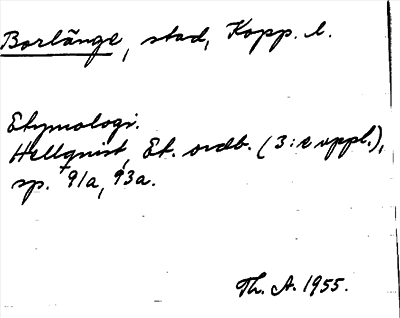 Borlänge, stad, Kopp. l.
Etymologi.
Hellquist, Et. ordb. (3:e uppl.),
sp. 91a, 93a.
Th. A. 1955.